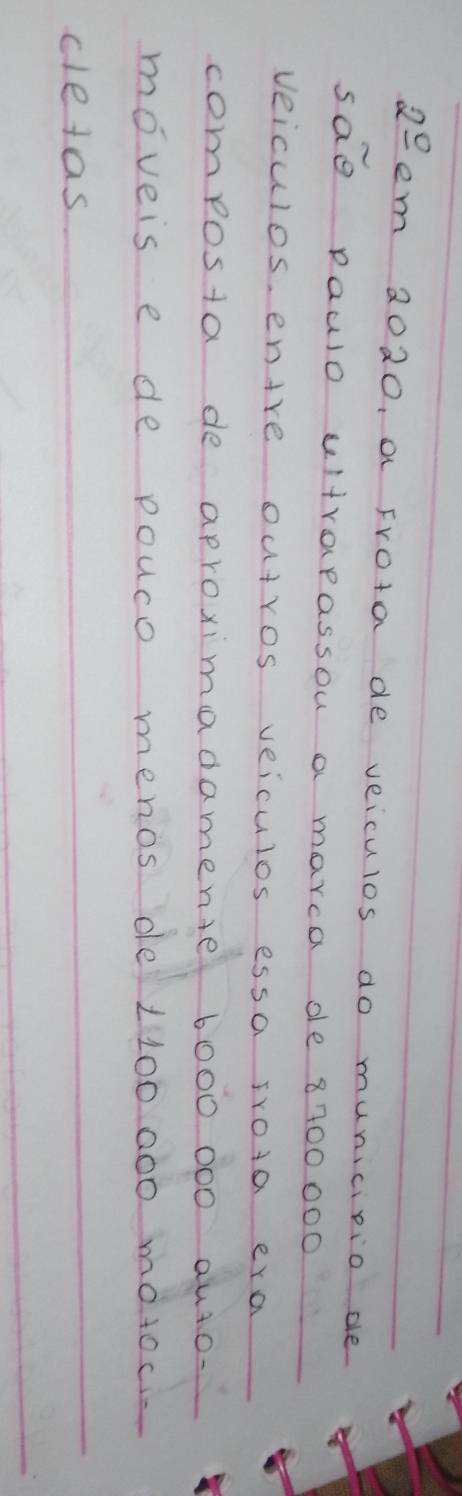 2º em 2020, a frota de veiculos do municipio de
são paulo ultrapassou a marca de 8700 000
veiculos. entre outros veiculos essa frota era
composta de aproximadamente 6000 000 auto-
móveis e de pouco menos de 1100 000 motoci-
cletas